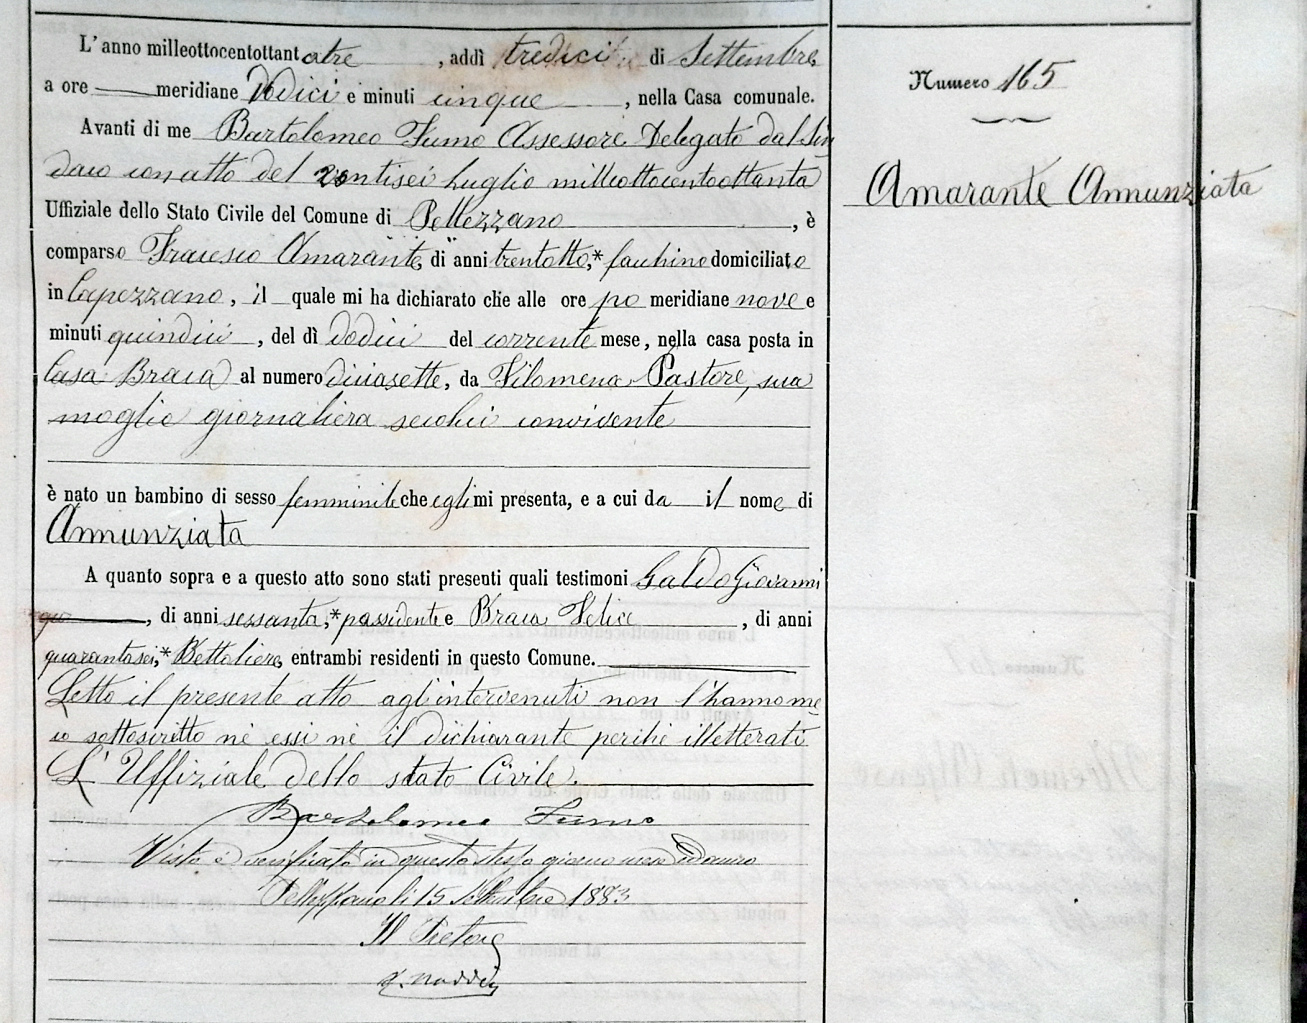 L'anno milleottocentottantatre, addì tredici di Settembre
a ore meridiane Dodici e minuti cinque, nella Casa comunale.
Avanti di me Bartolomeo Fumo Assessore Delegato dal Sin
daco con atto del ventisei Luglio milleottocentoottanta
Uffiziale dello Stato Civile del Comune di Pellezzano, è
comparso Francesco Amarante, di anni trentotto,* facchino domiciliato
in Capezzano, il quale mi ha dichiarato che alle ore po meridiane nove e
minuti quindici, del dì dodici del corrente mese, nella casa posta in
Casa Braca al numero diciasette, da Filomena Pastore, sua
moglie giornaliera secolui convivente
è nato un bambino di sesso femminile che egli mi presenta, e a cui da il nome di
Annunziata
A quanto sopra e a questo atto sono stati presenti quali testimoni Galdo Giovanni
, di anni sessanta,* possidente e Braca Felice, di anni
quarantasei,* Bettoliere, entrambi residenti in questo Comune.
Letto il presente atto agl'intervenuti non l'hanno me
co sottoscritto nè essi nè il dichiarante perche illetterati
L'Uffiziale dello stato Civile.
Bartolomeo Fumo
Visto e verificato in questo stesso giorno mese ed anno
Pellezzano li 15 Settembre 1883
Il Pretore
Numero 165
Amarante Annunziata